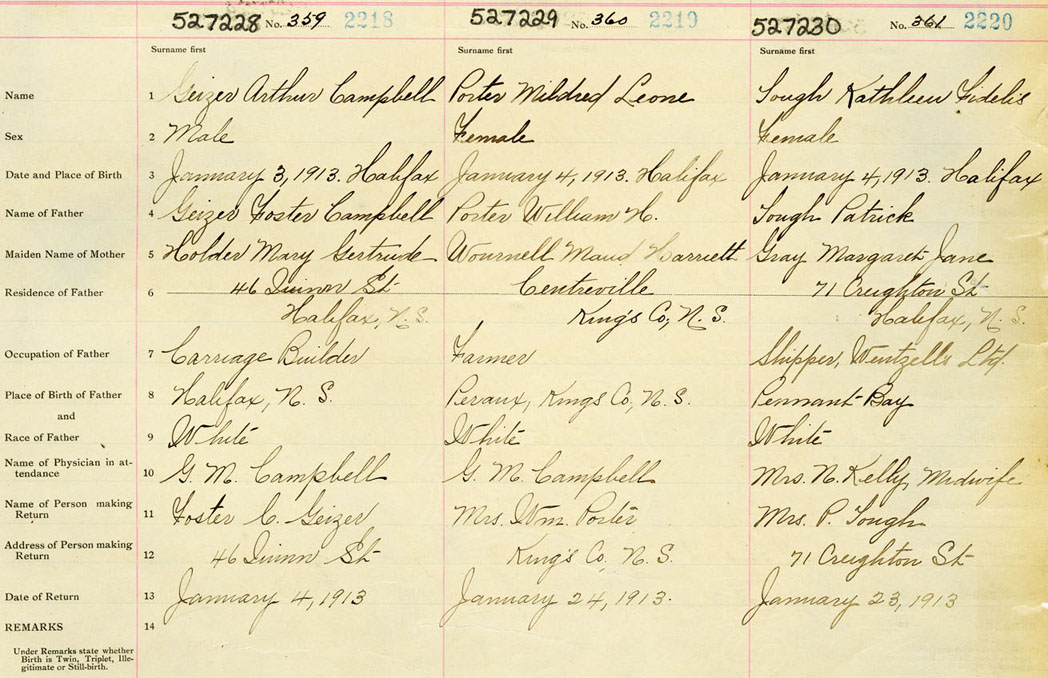 527228 No. 359 2218 527229 No. 360 2219 527230 No. 361 2220
Surname first Surname first Surname first
Name 1 Geizer Arthur Campbell Porter Mildred Leone Tough Kathleen Fidelis
Sex 2 Male Female Female
Date and Place of Birth 3 January 3, 1913. Halifax January 4, 1913. Halifax January 4, 1913. Halifax
Name of Father 4 Geizer Foster Campbell Porter William H. Tough Patrick
Maiden Name of Mother 5 Holder Mary Gertrude Wournell Maud Harriett Gray Margaret Jane
Residence of Father 6 46 Quinn St Centreville 71 Creighton St
Halifax, N.S. King's Co, N.S. Halifax, N.S.
Occupation of Father 7 Carriage Builder Farmer Shipper, Wentzells Ltd.
Place of Birth of Father 8 Halifax, N.S. Peraux, Kings Co, N.S. Pennant Bay
and
Race of Father 9 White White White
Name of Physician in at-
tendance 10 G. M. Campbell G. M. Campbell Mrs. N. Kelly, Midwife
Name of Person making
Return 11 Foster C. Geizer Mrs. Wm. Porter Mrs. P. Tough
Address of Person making
Return 12 46 Quinn St King's Co, N.S. 71 Creighton St
Date of Return 13 January 4, 1913 January 24, 1913. January 23, 1913
REMARKS 14
Under Remarks state whether
Birth is Twin, Triplet, Ille-
gitimate or Still-birth.